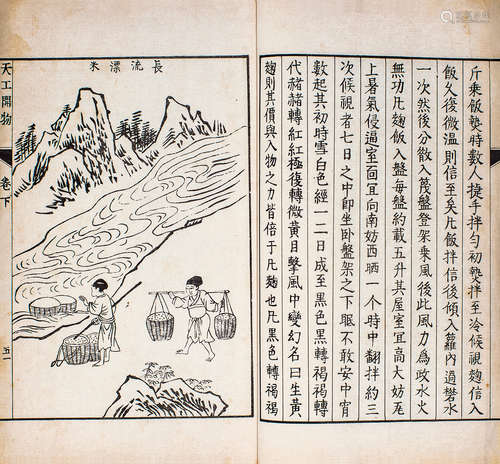 斤乘飯熱時數人捷手拌勻初熱拌至冷候視麴信入
飯久復微溫則信至矣凡飯拌信後傾入蘿內過礬水
一次然後分散入篾盤登架乘風後此風力為政水火
無功凡麴飯入盤每盤約載五升其屋室宜高大妨瓦
上暑氣侵逼室面宜向南妨西晒一个時中翻拌約三
次候視者七日之中即坐卧盤架之下眠不敢安中宵
數起其初時雪白色經一二日成至黑色黑轉褐褐轉
代赭赭轉紅紅極復轉微黃目擊風中變幻名曰生黃
麴則其價與入物之力皆倍于凡麴也凡黑色轉褐褐
長流漂米
天工開物
卷下
五一